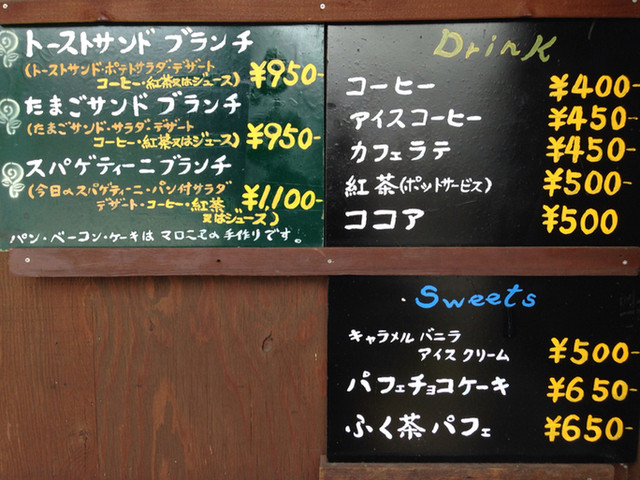 トーストサンド ブランチ
(トーストサンド・ポテトサラダ・デザート
コーヒー・紅茶又はジュース) ¥950-
たまごサンド ブランチ
(たまごサンド・サラダ・デザート
コーヒー・紅茶又はジュース) ¥950-
スパゲティーニブランチ
(今日のスパゲティーニ・パン付サラダ
デザート・コーヒー・紅茶
又はジュース) ¥1,100-
パン・ベーコン・ケーキは マロニエの手作りです。
Drink
コーヒー ¥400-
アイスコーヒー ¥450-
カフェラテ ¥450-
紅茶(ポットサービス) ¥500-
ココア ¥500
Sweets
キャラメル バニラ
アイス クリーム ¥500-
パフェチョコケーキ ¥650-
ふく茶パフェ ¥650-